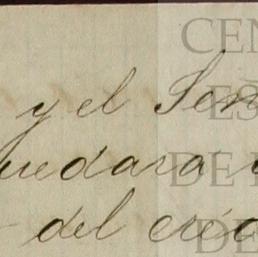 y el Sen
uedara
del créd
CEN
ES
DE
DE